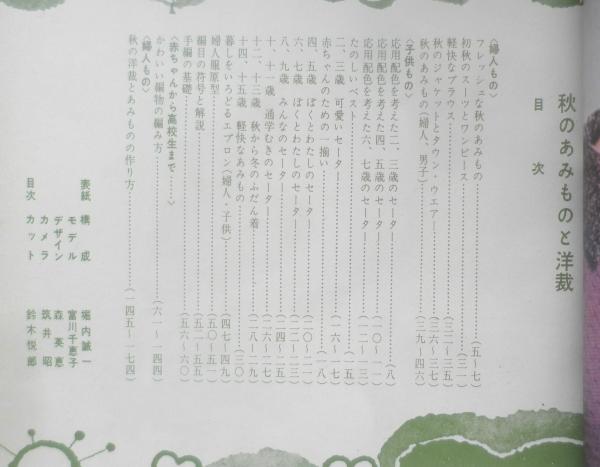 秋のあみものと洋裁
目次
〈婦人もの〉
フレッシュな秋のあみもの……(五〜七)
初秋のスーツとワンピース……(三一)
軽快なブラウス……(三二〜三五)
秋のジャケットとタウン・ウエアー……(三六〜三七)
秋のあみもの(婦人、男子)……(三九〜四六)
〈子供もの〉
応用配色を考えた二、三歳のセーター……(八)
応用配色を考えた四、五歳のセーター……(一〇〜一一)
応用配色を考えた六、七歳のセーター……(一二〜一三)
たのしいベスト……(一五)
二、三歳 可愛いセーター……(一六〜一七)
赤ちゃんのための一揃い……(一八)
四、五歳 ぼくとわたしのセーター……(二〇〜二一)
六、七歳 ぼくとわたしのセーター……(二二〜二三)
八、九歳 みんなのセーター……(二四〜二五)
十、十一歳 通学むきのセーター……(二六〜二七)
十二、十三歳 秋から冬のふだん着……(二八〜二九)
十四、十五歳 軽快なあみもの……(三〇)
暮しをいろどるエプロン(婦人、子供)……(四七〜四九)
婦人服原型……(五〇〜五一)
編目の符号と解説……(五二〜五五)
手編の基礎……(五六〜六〇)
〈赤ちゃんから高校生まで……〉
かわいい編物の編み方……(六一〜一四四)
〈婦人もの〉
秋の洋裁とあみものの作り方……(一四五〜一七四)
表紙 構成 堀内誠一
モデル 富川千恵子
デザイン 森英恵
カメラ 筑井昭
目次 カット 鈴木悦郎